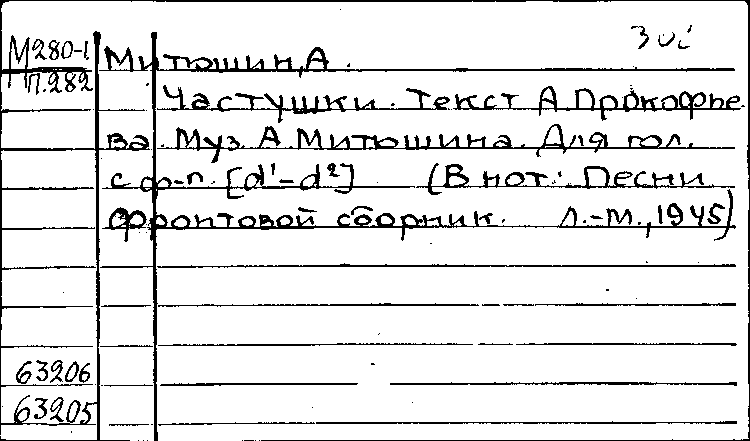 М280-1
П.282
Митюшин, А.
Частушки. Текст А. Прокофье
ва. Муз. А. Митюшина. Для гол.
с ф-п. [d¹-d²] (В нот.: Песни
фронтовой сборник. Л.-М., 1945)
63206
63205